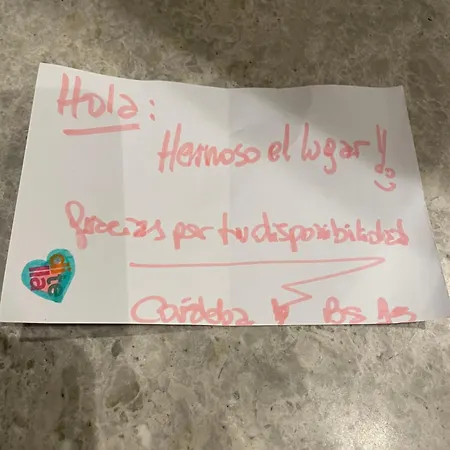 Hola:
Hermoso el lugar!
Gracias por tu disponibilidad
Córdoba y Bs As